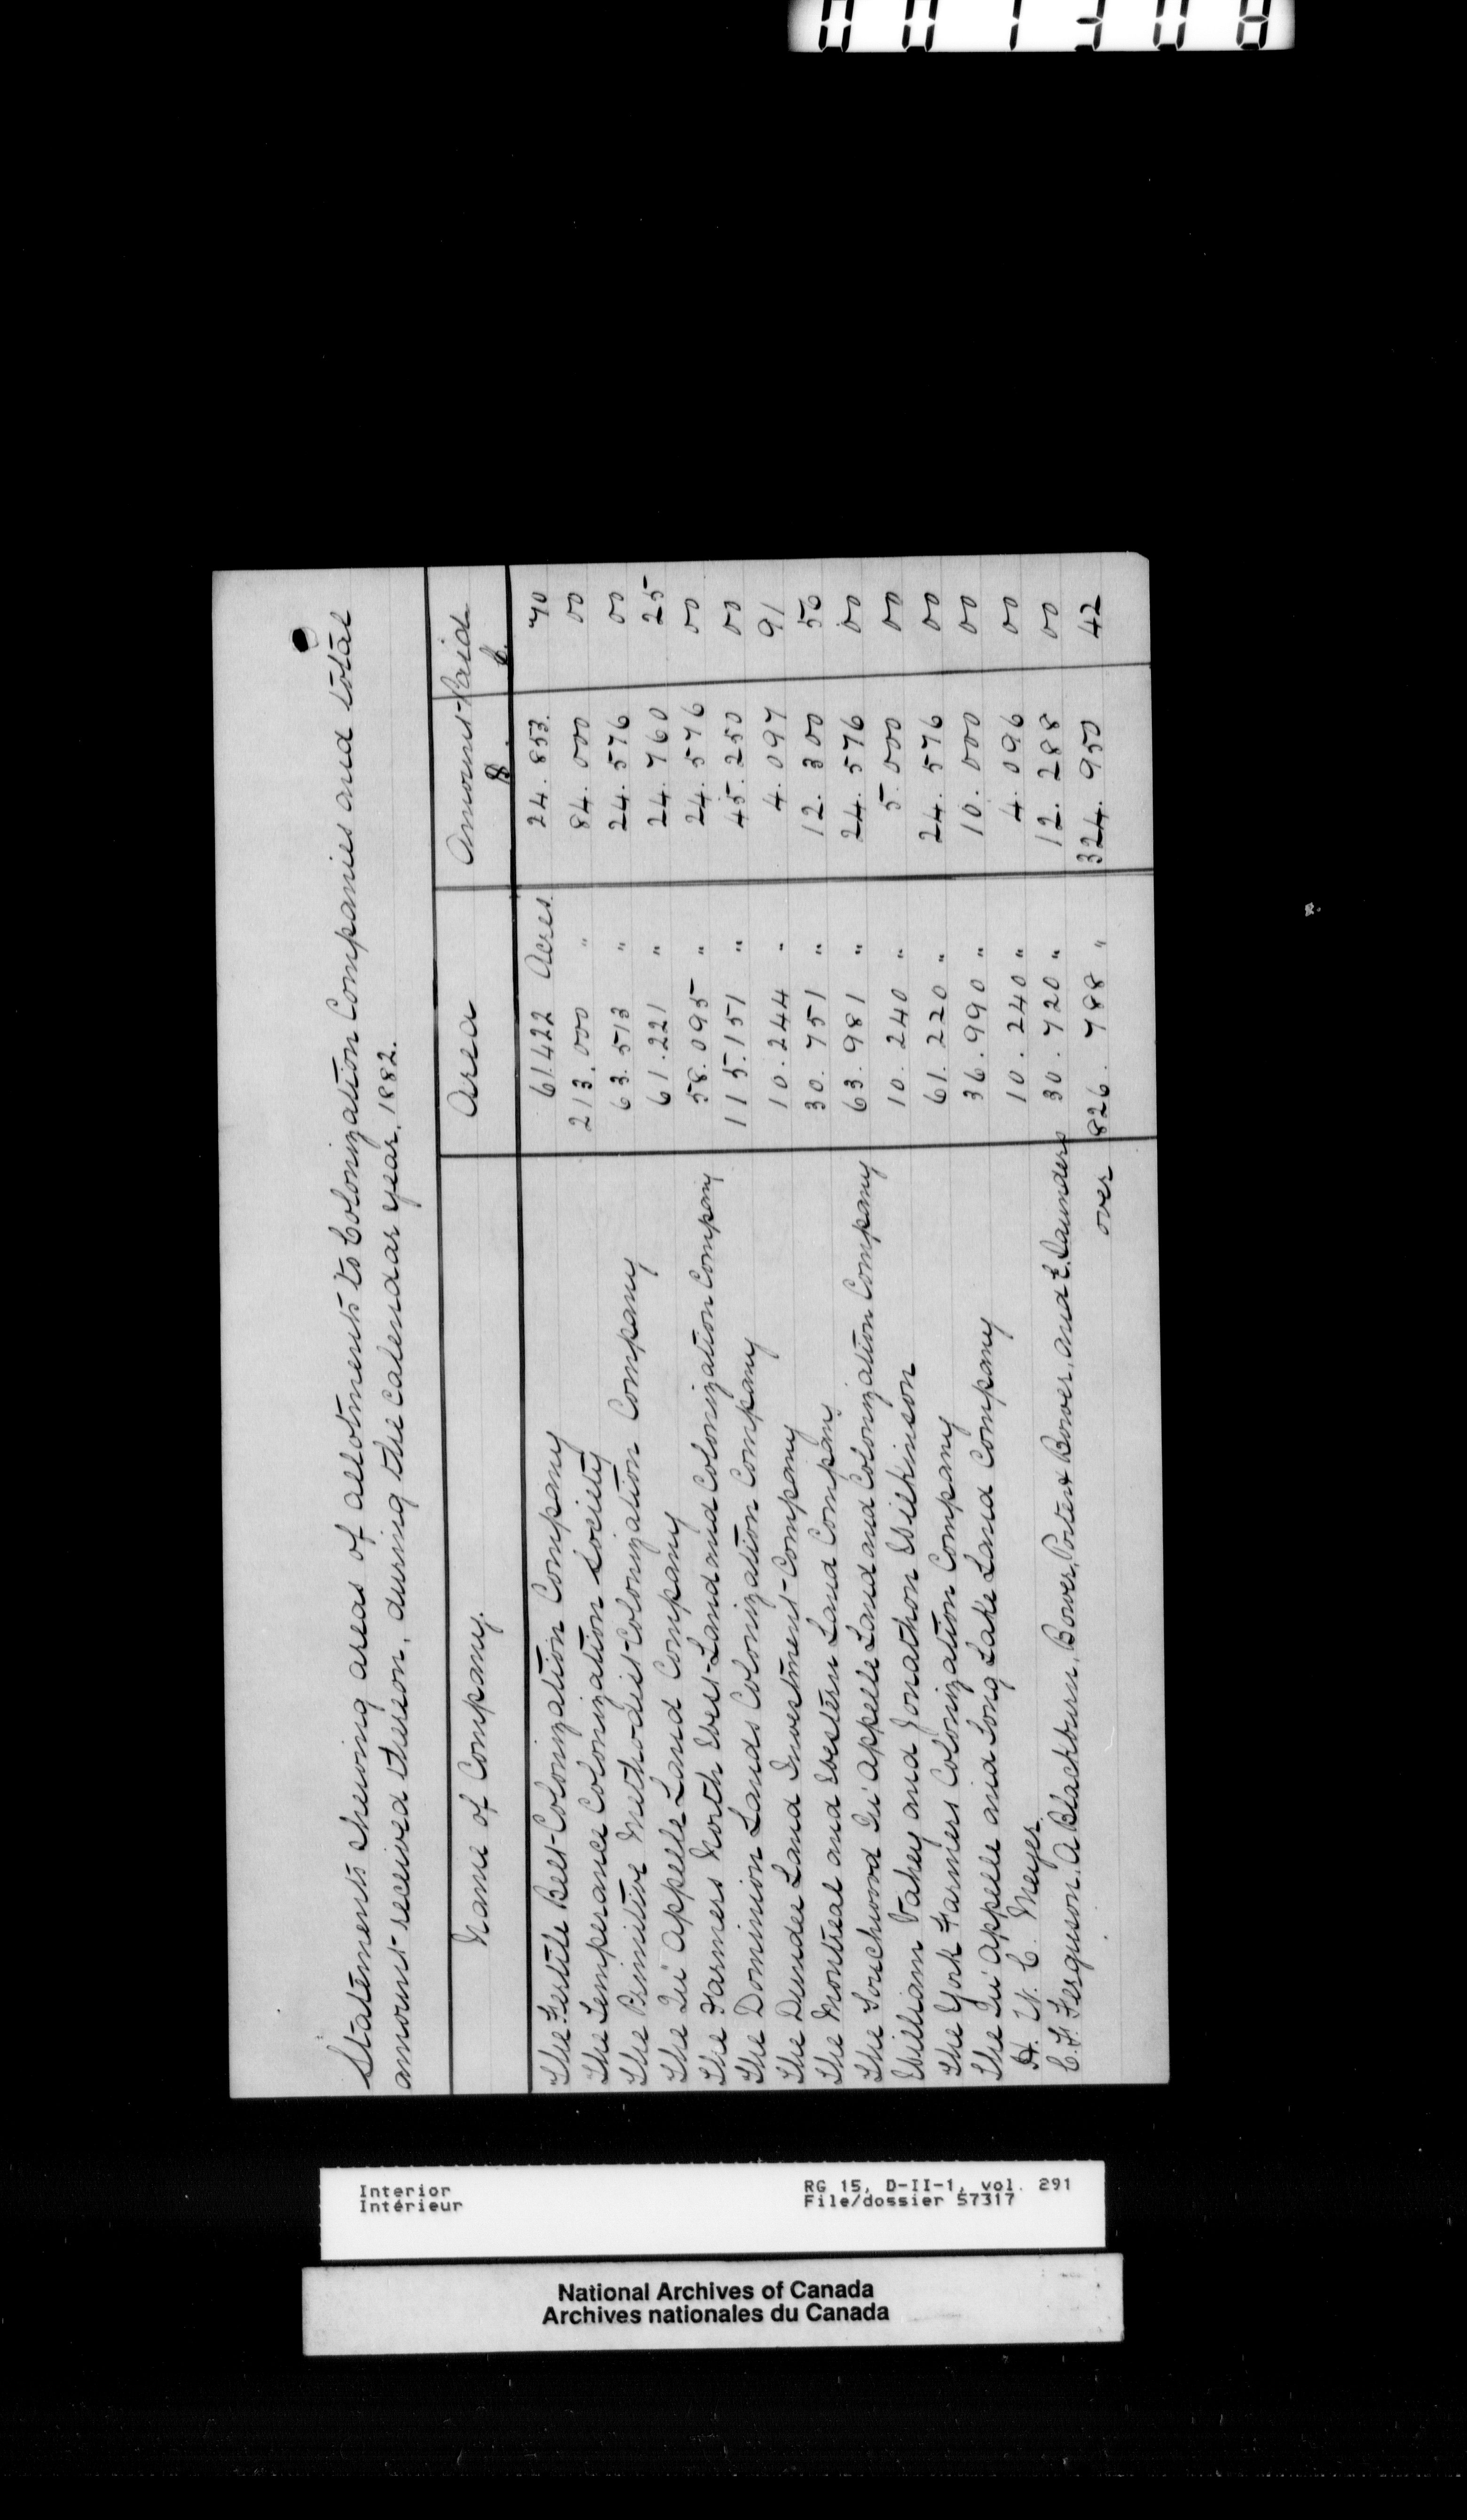 Statements shewing areas of allotments to Colonization Companies and total
amount received thereon, during the Calendar year, 1882.
Name of Company. Area Amount Paid
$ c.
The Fertile Belt Colonization Company 61.422 Acres 24.853. 70
The Temperance Colonization Society 213.000 " 84.000 00
The Primitive Methodist Colonization Company 63.513 " 24.576 00
The Qu'Appelle Land Company 61.221 " 24.760 25
The Farmers North West Land and Colonization Company 58.095 " 24.576 00
The Dominion Lands Colonization Company 115.151 " 45.250 00
The Dundee Land Investment Company 10.244 " 4.097 91
The Montreal and Western Land Company 30.751 " 12.300 56
The Touchwood Qu'Appelle Land and Colonization Company 63.981 " 24.576 00
William Vahey and Jonathon Wilkinson 10.240 " 5.000 00
The York Farmers Colonization Company 61.220 " 24.576 00
The Qu'Appelle and Long Lake Land Company 36.990 " 10.000 00
H. U. C. Meyer 10.240 " 4.096 00
C. F. Ferguson, A Blackburn, Bower, Porter & Bower, and E. Saunders 30.720 " 12.288 00
over 826.788 " 324.950 42
Interior RG 15, D-II-1, vol. 291
Intérieur File/dossier 57317
National Archives of Canada
Archives nationales du Canada